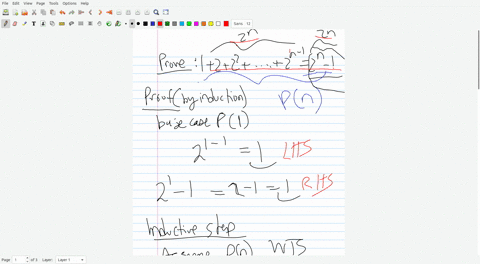 File Edit View Page Tools Insert Document Help
Sans 12
2^n 2^n
Prove: 1+2+2^2+....+2^{n-1} = 2^n-1
Proof (by induction) P(n)
base case P(1)
2^{1-1} = 1 LHS
2^1-1 = 2-1 = 1 RHS
Inductive step
Assume P(n) WTS
Page 1 of 3 Layer: Layer 1